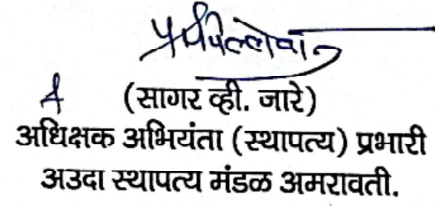 (सागर व्ही. जारे)
अधिक्षक अभियंता (स्थापत्य) प्रभारी
अउदा स्थापत्य मंडळ अमरावती.